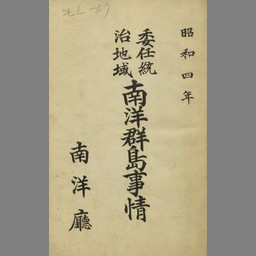 昭和四年
委任統治地域
南洋群島事情
南洋廳